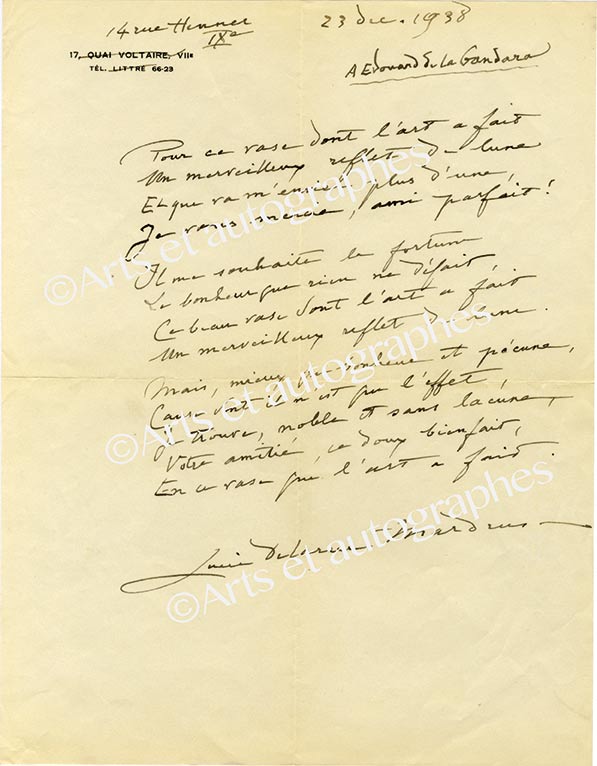 14 rue Henner
IXe
23 dec. 1938
17, QUAI VOLTAIRE, VIIe
TÉL. LITTRÉ 66-23
A Edouard de la Gandara
Pour ce vase dont l'art a fait
Un merveilleux reflet de lune
Et que va m'envier plus d'une,
Je vous mercie, ami parfait!
Il me souhaite la fortune
Le bonheur que rien ne défait,
Ce beau vase dont l'art a fait
Un merveilleux reflet de lune.
Mais, mieux que bonheur et pécune,
Cause dont il n'est que l'effet,
Je trouve, noble et sans lacune,
Votre amitié, ce doux bienfait,
En ce vase que l'art a fait.
Lucie Delarue Mardrus
©Arts et autographes
©Arts et autographes
©Arts et autographes